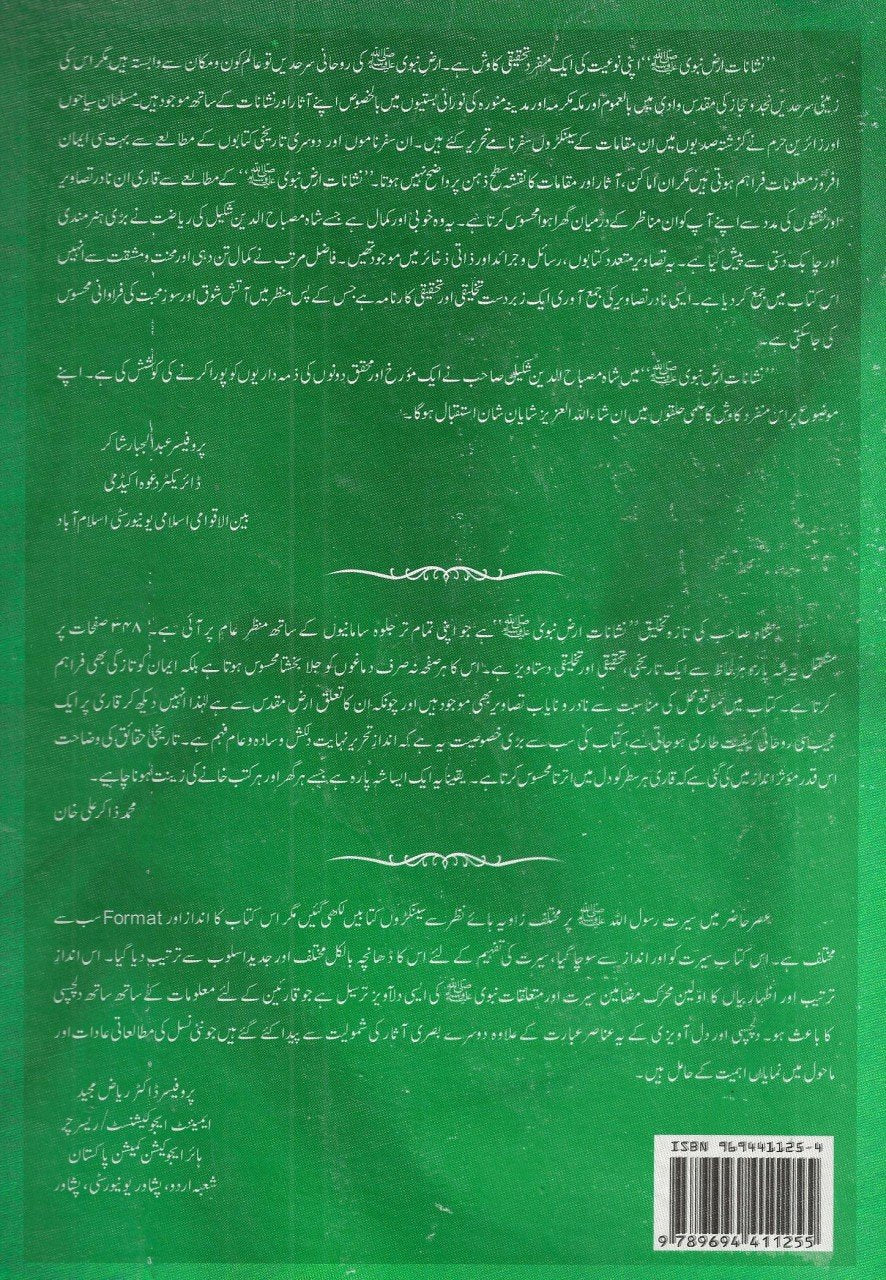 ”نشانات ارض نبوی ﷺ“ اپنی نوعیت کی ایک منفرد تحقیقی کاوش ہے۔ ارض نبوی ﷺ کی روحانی سرحدیں تو عالم کون و مکان سے وابستہ ہیں مگر اس کی
زمینی سرحدیں نجد و حجاز کی مقدس وادی میں بالعموم اور مکہ مکرمہ اور مدینہ منورہ کی نورانی بستیوں میں بالخصوص اپنے آثار اور نشانات کے ساتھ موجود ہیں۔ مسلمان سیاحوں
اور زائرین حرم نے گزشتہ صدیوں میں ان مقامات کے سینکڑوں سفرنامے تحریر کئے ہیں۔ ان سفرناموں اور دوسری تاریخی کتابوں کے مطالعے سے بہت سی ایمان
افروز معلومات فراہم ہوتی ہیں مگر ان اماکن، آثار اور مقامات کا نقشہ سطح ذہن پر واضح نہیں ہوتا۔ ”نشانات ارض نبوی ﷺ“ کے مطالعے سے قاری ان نادر تصاویر
اور نقشوں کی مدد سے اپنے آپ کو ان مناظر کے درمیان گھرا ہوا محسوس کرتا ہے۔ یہ وہ خوبی اور کمال ہے جسے شاہ مصباح الدین شکیل کی ریاضت نے بڑی ہنرمندی
اور چابک دستی سے پیش کیا ہے۔ یہ تصاویر متعدد کتابوں، رسائل و جرائد اور ذاتی ذخائر میں موجود تھیں۔ فاضل مرتب نے کمال تن دہی اور محنت و مشقت سے انہیں
اس کتاب میں جمع کر دیا ہے۔ ایسی نادر تصاویر کی جمع آوری ایک زبردست تخلیقی اور تحقیقی کارنامہ ہے جس کے پس منظر میں آتش شوق اور سوز محبت کی فراوانی محسوس
کی جا سکتی ہے۔
”نشانات ارض نبوی ﷺ“ میں شاہ مصباح الدین شکیل صاحب نے ایک مؤرخ اور محقق دونوں کی ذمہ داریوں کو پورا کرنے کی کوشش کی ہے۔ اپنے
موضوع پر اس منفرد کاوش کا علمی حلقوں میں ان شاء اللہ العزیز شایان شان استقبال ہوگا۔
پروفیسر عبدالجبار شاکر
ڈائریکٹر دعوہ اکیڈمی
بین الاقوامی اسلامی یونیورسٹی اسلام آباد
شاہ صاحب کی تازہ تخلیق ”نشانات ارض نبوی ﷺ“ ہے جو اپنی تمام تر جلوہ سامانیوں کے ساتھ منظر عام پر آئی ہے۔ ۳۴۸ صفحات پر
مشتمل یہ شہ پارہ ہر لحاظ سے ایک تاریخی، تحقیقی اور تخلیقی دستاویز ہے۔ اس کا ہر صفحہ نہ صرف دماغوں کو جلا بخشتا محسوس ہوتا ہے بلکہ ایمان کو تازگی بھی فراہم
کرتا ہے۔ کتاب میں موقع محل کی مناسبت سے نادر و نایاب تصاویر بھی موجود ہیں اور چونکہ ان کا تعلق ارض مقدس سے ہے لہٰذا انہیں دیکھ کر قاری پر ایک
عجیب سی روحانی کیفیت طاری ہو جاتی ہے، کتاب کی سب سے بڑی خصوصیت یہ ہے کہ انداز تحریر نہایت دلکش و سادہ و عام فہم ہے۔ تاریخی حقائق کی وضاحت
اس قدر مؤثر انداز میں کی گئی ہے کہ قاری ہر سطر کو دل میں اترتا محسوس کرتا ہے۔ یقیناً یہ ایک ایسا شہ پارہ ہے جسے ہر گھر اور ہر کتب خانے کی زینت ہونا چاہیے۔
محمد ذاکر علی خان
عصر حاضر میں سیرت رسول اللہ ﷺ پر مختلف زاویہ ہائے نظر سے سینکڑوں کتابیں لکھی گئیں مگر اس کتاب کا انداز اور Format سب سے
مختلف ہے۔ اس کتاب سیرت کو اور انداز سے سوچا گیا، سیرت کی تفہیم کے لئے اس کا ڈھانچہ بالکل مختلف اور جدید اسلوب سے ترتیب دیا گیا۔ اس انداز
ترتیب اور اظہار بیاں کا اولین محرک مضامین سیرت اور متعلقات نبوی ﷺ کی ایسی دلآویز ترسیل ہے جو قارئین کے لئے معلومات کے ساتھ ساتھ دلچسپی
کا باعث ہو۔ دلچسپی اور دل آویزی کے یہ عناصر عبارت کے علاوہ دوسرے بصری آثار کی شمولیت سے پیدا کئے گئے ہیں جو نئی نسل کی مطالعاتی عادات اور
ماحول میں نمایاں اہمیت کے حامل ہیں۔
پروفیسر ڈاکٹر ریاض مجید
ایمیننٹ ایجوکیشنسٹ / ریسرچر
ہائر ایجوکیشن کمیشن پاکستان
شعبہ اردو، پشاور یونیورسٹی، پشاور
ISBN 969441125-4
9 789694 411255